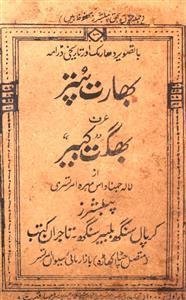 باتصویر دھارمک و تاریخی ڈرامہ
بھارت سُپتر
عرف
بھگت کبیر
از
لالہ جمناداس مہرہ امرتسری
پبلشرز
کرپال سنگھ بلبیر سنگھ، تاجران کتب
بازار مائی سیواں امرتسر